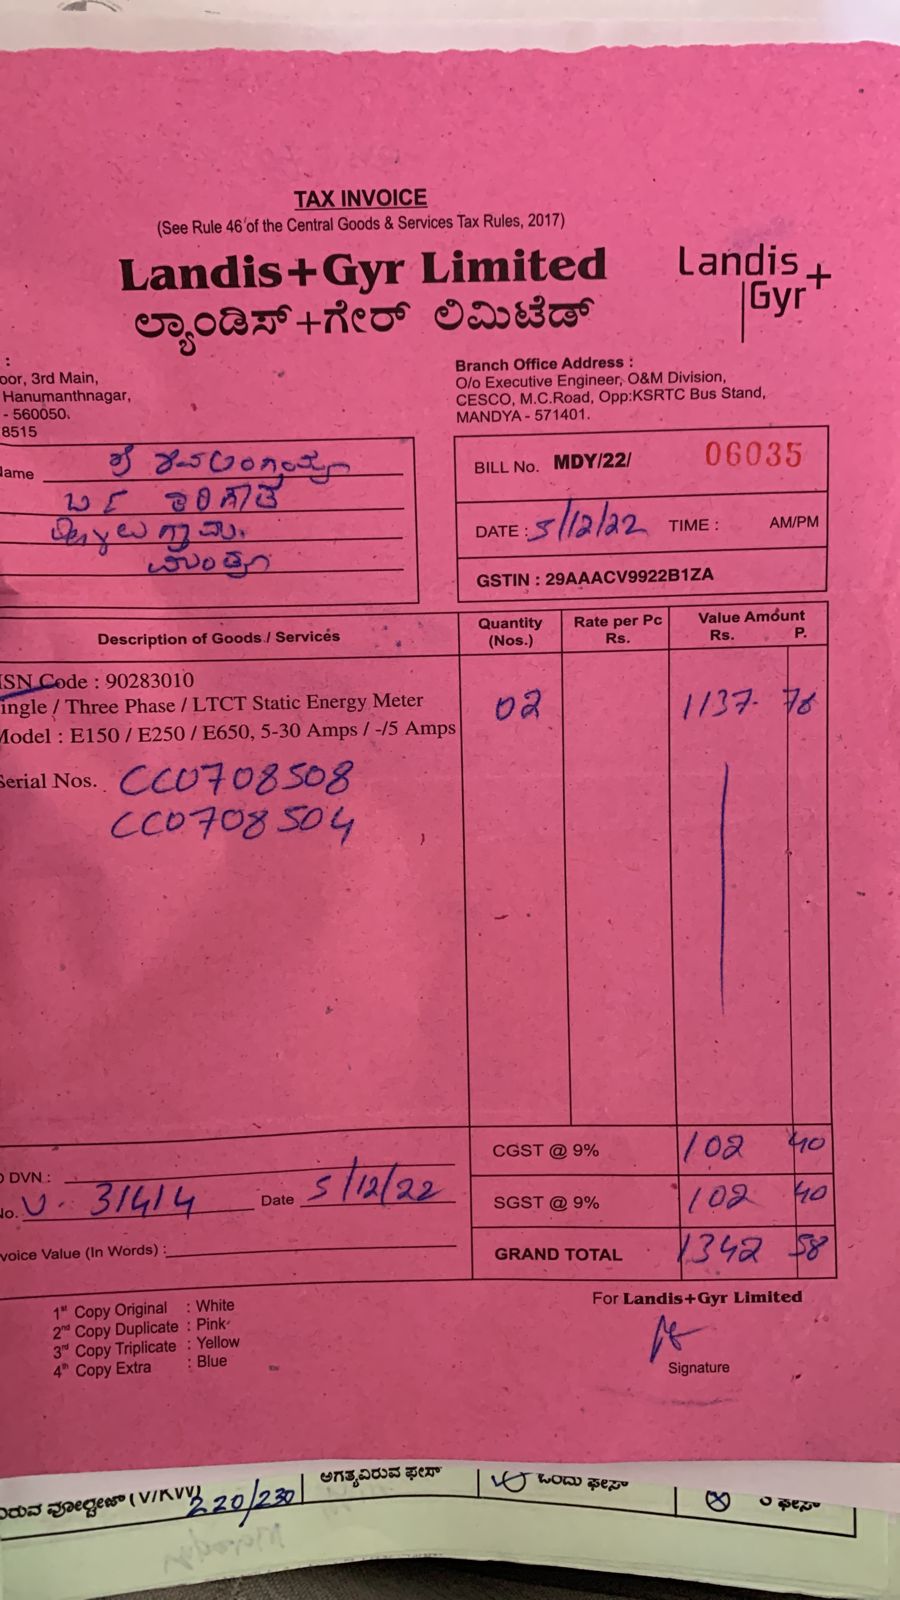 TAX INVOICE
(See Rule 46 of the Central Goods & Services Tax Rules, 2017)
Landis+Gyr Limited
ಲ್ಯಾಂಡಿಸ್+ಗೇರ್ ಲಿಮಿಟೆಡ್
Landis
Gyr+
:
oor, 3rd Main,
Hanumanthnagar,
- 560050.
8515
Branch Office Address :
O/o Executive Engineer, O&M Division,
CESCO, M.C.Road, Opp:KSRTC Bus Stand,
MANDYA - 571401.
ame ಶ್ರೀ
ಗ್ರಾಮ.
ಮಂಡ್ಯ
BILL No. MDY/22/ 06035
DATE : 5/12/22 TIME : AM/PM
GSTIN : 29AAACV9922B1ZA
Description of Goods / Services
Quantity (Nos.)
Rate per Pc Rs.
Value Amount Rs. P.
ISN Code : 90283010
ingle / Three Phase / LTCT Static Energy Meter 02 1137- 78
Model : E150 / E250 / E650, 5-30 Amps / -/5 Amps
Serial Nos. CC0708508
CC0708504
CGST @ 9% 102 40
DVN :
SGST @ 9% 102 40
No. V- 31414 Date 5/12/22
voice Value (In Words) :
GRAND TOTAL 1342 58
1st Copy Original : White
2nd Copy Duplicate : Pink
3rd Copy Triplicate : Yellow
4th Copy Extra : Blue
For Landis+Gyr Limited
Signature
ಿರುವ ವೋಲ್ಟೇಜ್ (V/KV) 220/230
ಅಗತ್ಯವಿರುವ ಫೇಸ್
ಒಂದು ಫೇಸ್
ಫೇಸ್